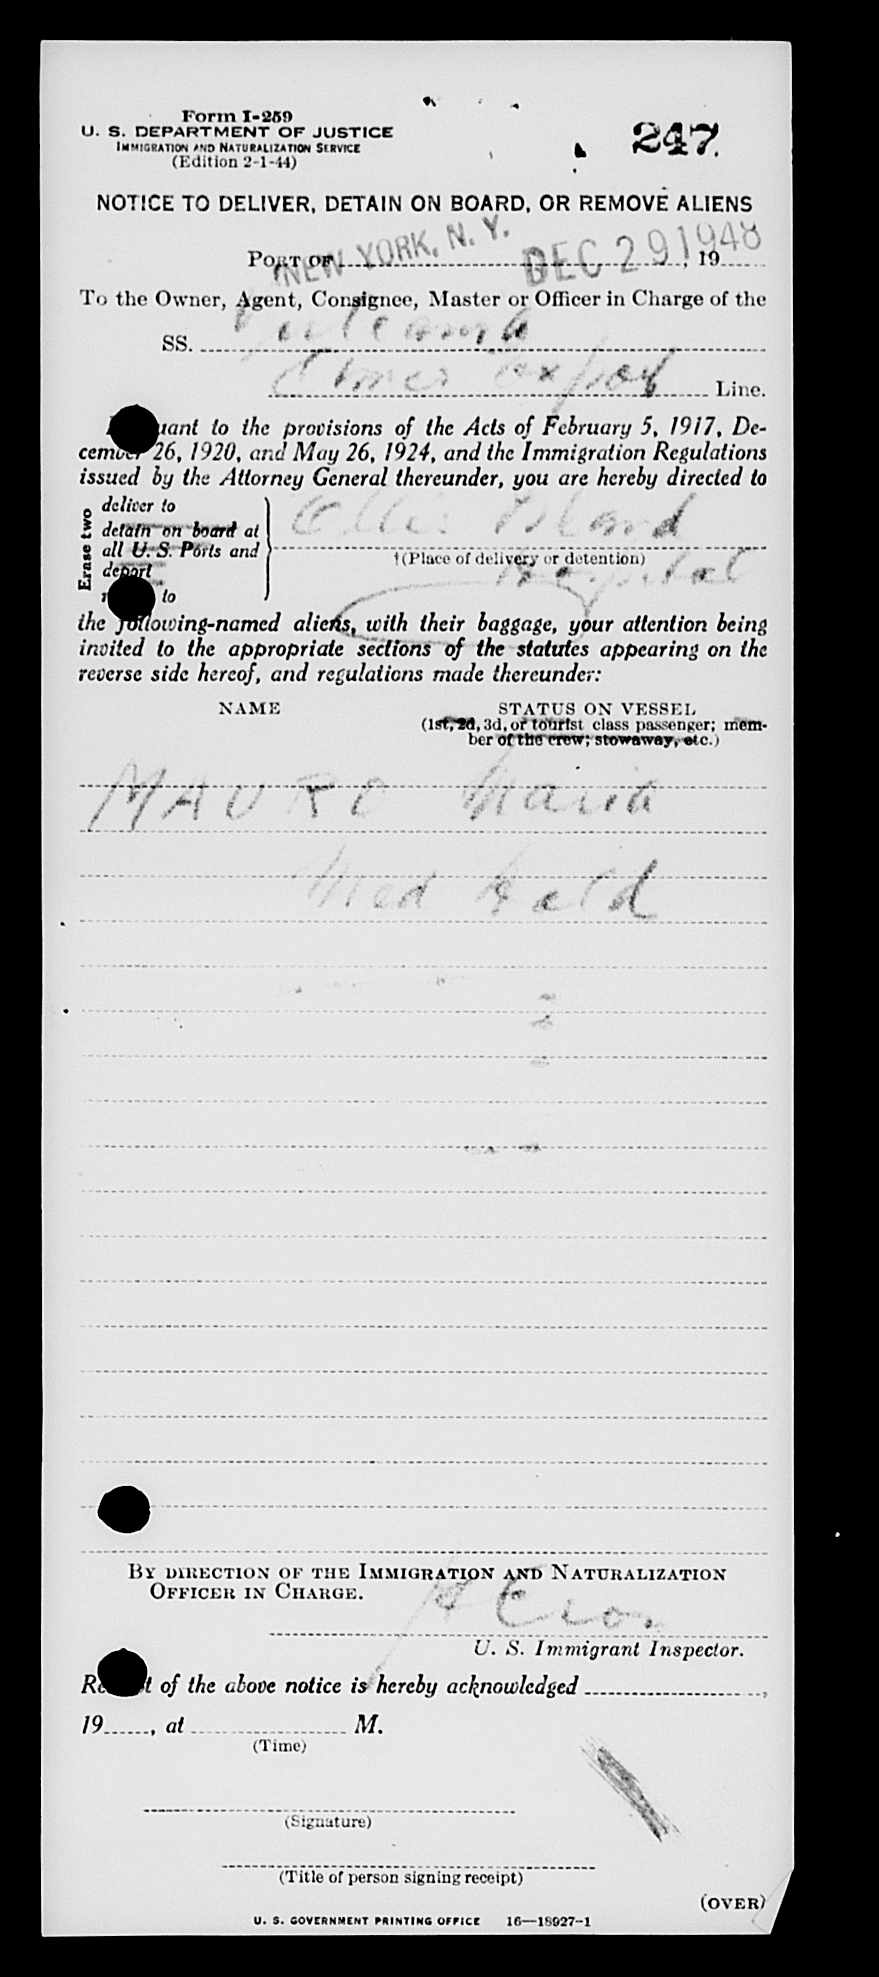 Form I-259
U. S. DEPARTMENT OF JUSTICE
IMMIGRATION AND NATURALIZATION SERVICE
(Edition 2-1-44)
247
NOTICE TO DELIVER, DETAIN ON BOARD, OR REMOVE ALIENS
PORT OF NEW YORK, N. Y. DEC 29 1948, 19
To the Owner, Agent, Consignee, Master or Officer in Charge of the
SS. Vulcania
Amer Export Line.
uant to the provisions of the Acts of February 5, 1917, De-
cember 26, 1920, and May 26, 1924, and the Immigration Regulations
issued by the Attorney General thereunder, you are hereby directed to
Erase two
deliver to
detain on board at
all U. S. Ports and
deport
to
Ellis Island
†(Place of delivery or detention)
Hospital
the following-named aliens, with their baggage, your attention being
invited to the appropriate sections of the statutes appearing on the
reverse side hereof, and regulations made thereunder:
NAME STATUS ON VESSEL
(1st, 2d, 3d, or tourist class passenger; mem-
ber of the crew; stowaway, etc.)
MAURO Maria
Med Held
BY DIRECTION OF THE IMMIGRATION AND NATURALIZATION
OFFICER IN CHARGE.
U. S. Immigrant Inspector.
Receipt of the above notice is hereby acknowledged ,
19 , at M.
(Time)
(Signature)
(Title of person signing receipt)
(OVER)
U. S. GOVERNMENT PRINTING OFFICE 16—18927-1